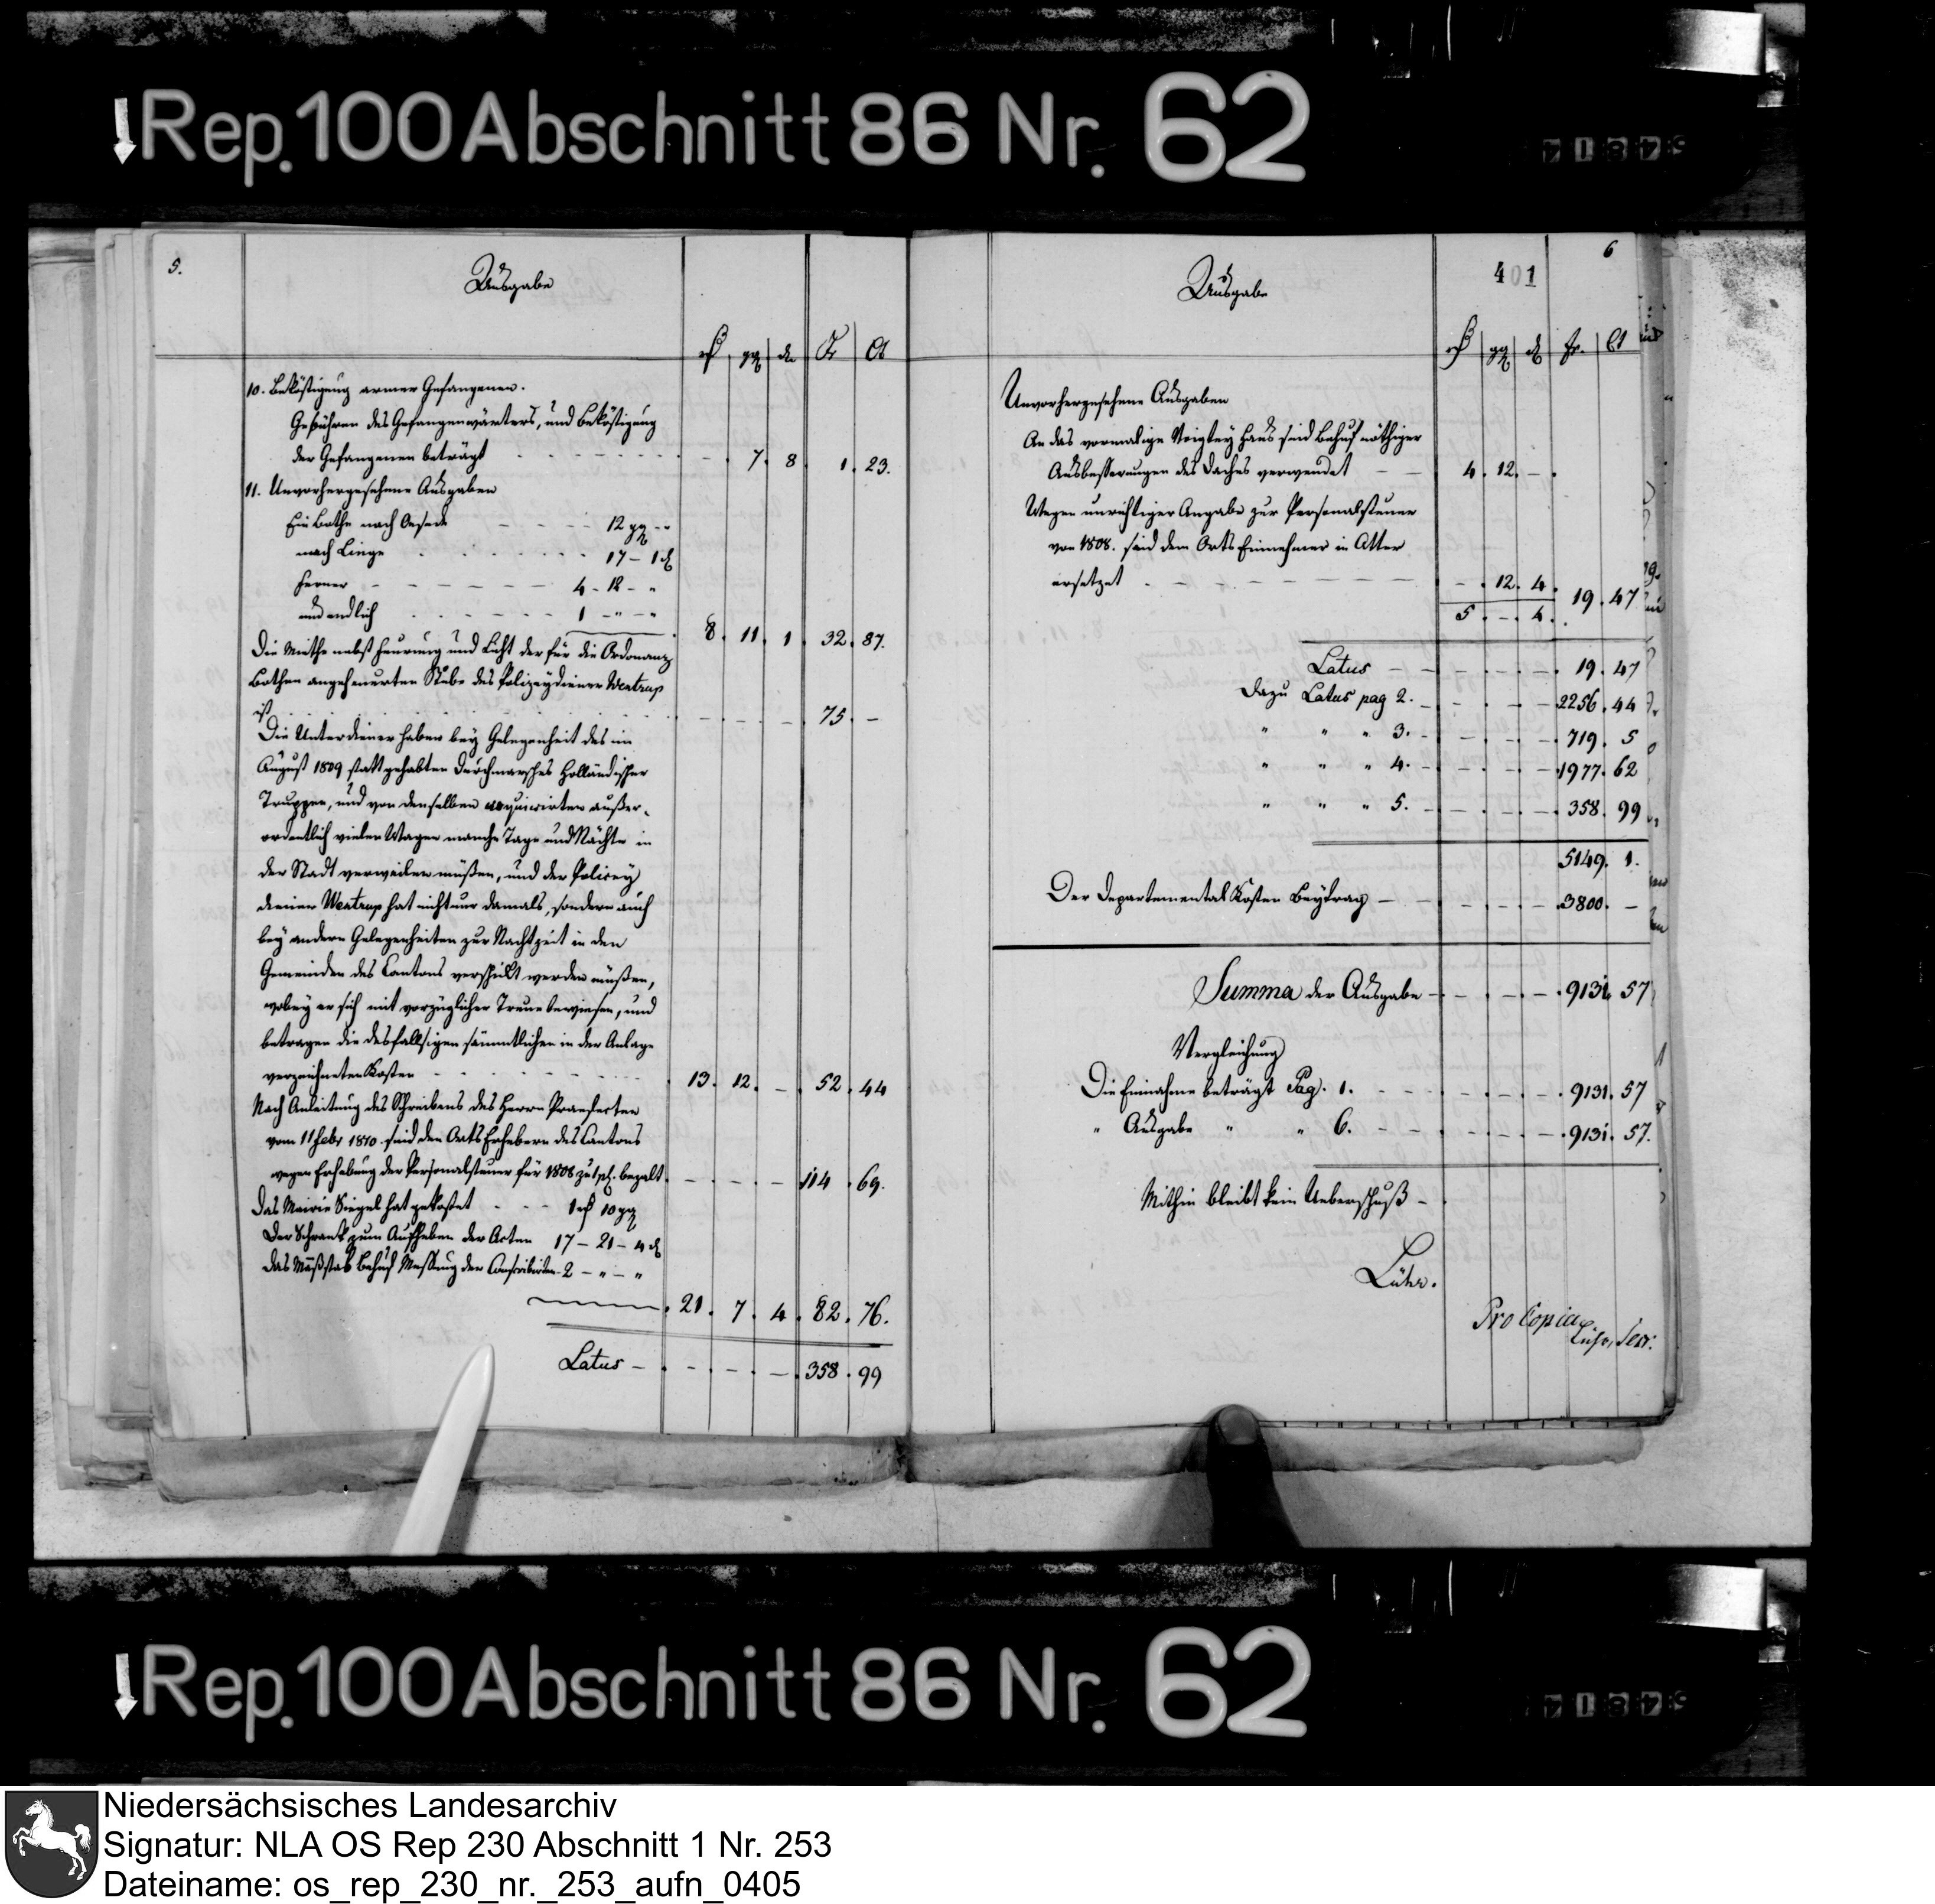 Rep. 100 Abschnitt 86 Nr. 62
5.
Ausgabe
rß gg d Fr Ct
10. Beköstigung armer Gefangenen.
Gebühren des Gefangenwärters, und Beköstigung
der Gefangenen beträgt - 7. 8 1. 23.
11. Unvorhergesehene Ausgaben
Ein Bothe nach Oesede 12 gg - "
nach Linge 17 - 1 d
ferner 4 - 18 - "
und endlich 1 - " - "
8. 11. 1. 32. 87.
Die Miethe nebst Feurung und Licht der für die Ordonanz
Bothen angeheuerten Stube des Polizeydiener Wentrup
ist - - - 75. -
Die Unterdiener haben bey Gelegenheit des im
August 1809 statt gehabten Durchmarsches Holländischer
Truppen, und von denselben requirirten außer-
ordentlich vielen Wagen manche Tage und Nächte in
der Stadt verweilen müßen, und der Policey
diener Wentrup hat nicht nur damals, sondern auch
bey andern Gelegenheiten zur Nachtzeit in den
Gemeinden des Cantons verschickt werden müßen,
wobey er sich mit vorzüglicher Treue bewiesen, und
betragen die desfallsigen sämmtlichen in der Anlage
verzeichneten Kosten 13. 12. - 52. 44
Nach Anleitung des Schreibens des Herrn Praefecten
vom 11 Febr 1810. sind den Orts Erhebern des Cantons
wegen Erhebung der Personalsteuer für 1808 bezalt - - - 114. 69.
Das Mairie Siegel hat gekostet 1 rß 10 gg
Der Schrank zum Aufheben der Acten 17 - 21 - 4 d
Das Maßstab Behuf Messung der Conscribirten 2 - " - "
21. 7. 4. 82. 76.
Latus - - - - 358. 99
401
6
Ausgabe
rß gg d fr. Ct
Unvorhergesehene Ausgaben
An das vormalige Voigtey Haus sind Behuf nöthiger
Ausbesserungen des Daches verwendet 4. 12. -
Wegen unrichtiger Angabe zur Personalsteuer
von 1808. sind dem Orts Einnehmer in Atter
ersetzet - 12. 4.
5. - 4. 19. 47
Latus - - - - 19. 47
Dazu Latus pag 2. - - - 2256. 44
" " " 3. - - - 719. 5
" " " 4. - - - 1977. 62
" " " 5. - - - 358. 99
5149. 1.
Der Departemental Kosten Beytrag - - - 3800. -
Summa der Ausgabe - - - 9131. 57
Vergleichung
Die Einnahme beträgt Pag. 1. - - - 9131. 57
" Ausgabe " " 6. - - - 9131. 57.
Mithin bleibt kein Ueberschuß -
Lühr.
Pro Copia
Secr:
Rep. 100 Abschnitt 86 Nr. 62
Niedersächsisches Landesarchiv
Signatur: NLA OS Rep 230 Abschnitt 1 Nr. 253
Dateiname: os_rep_230_nr._253_aufn_0405